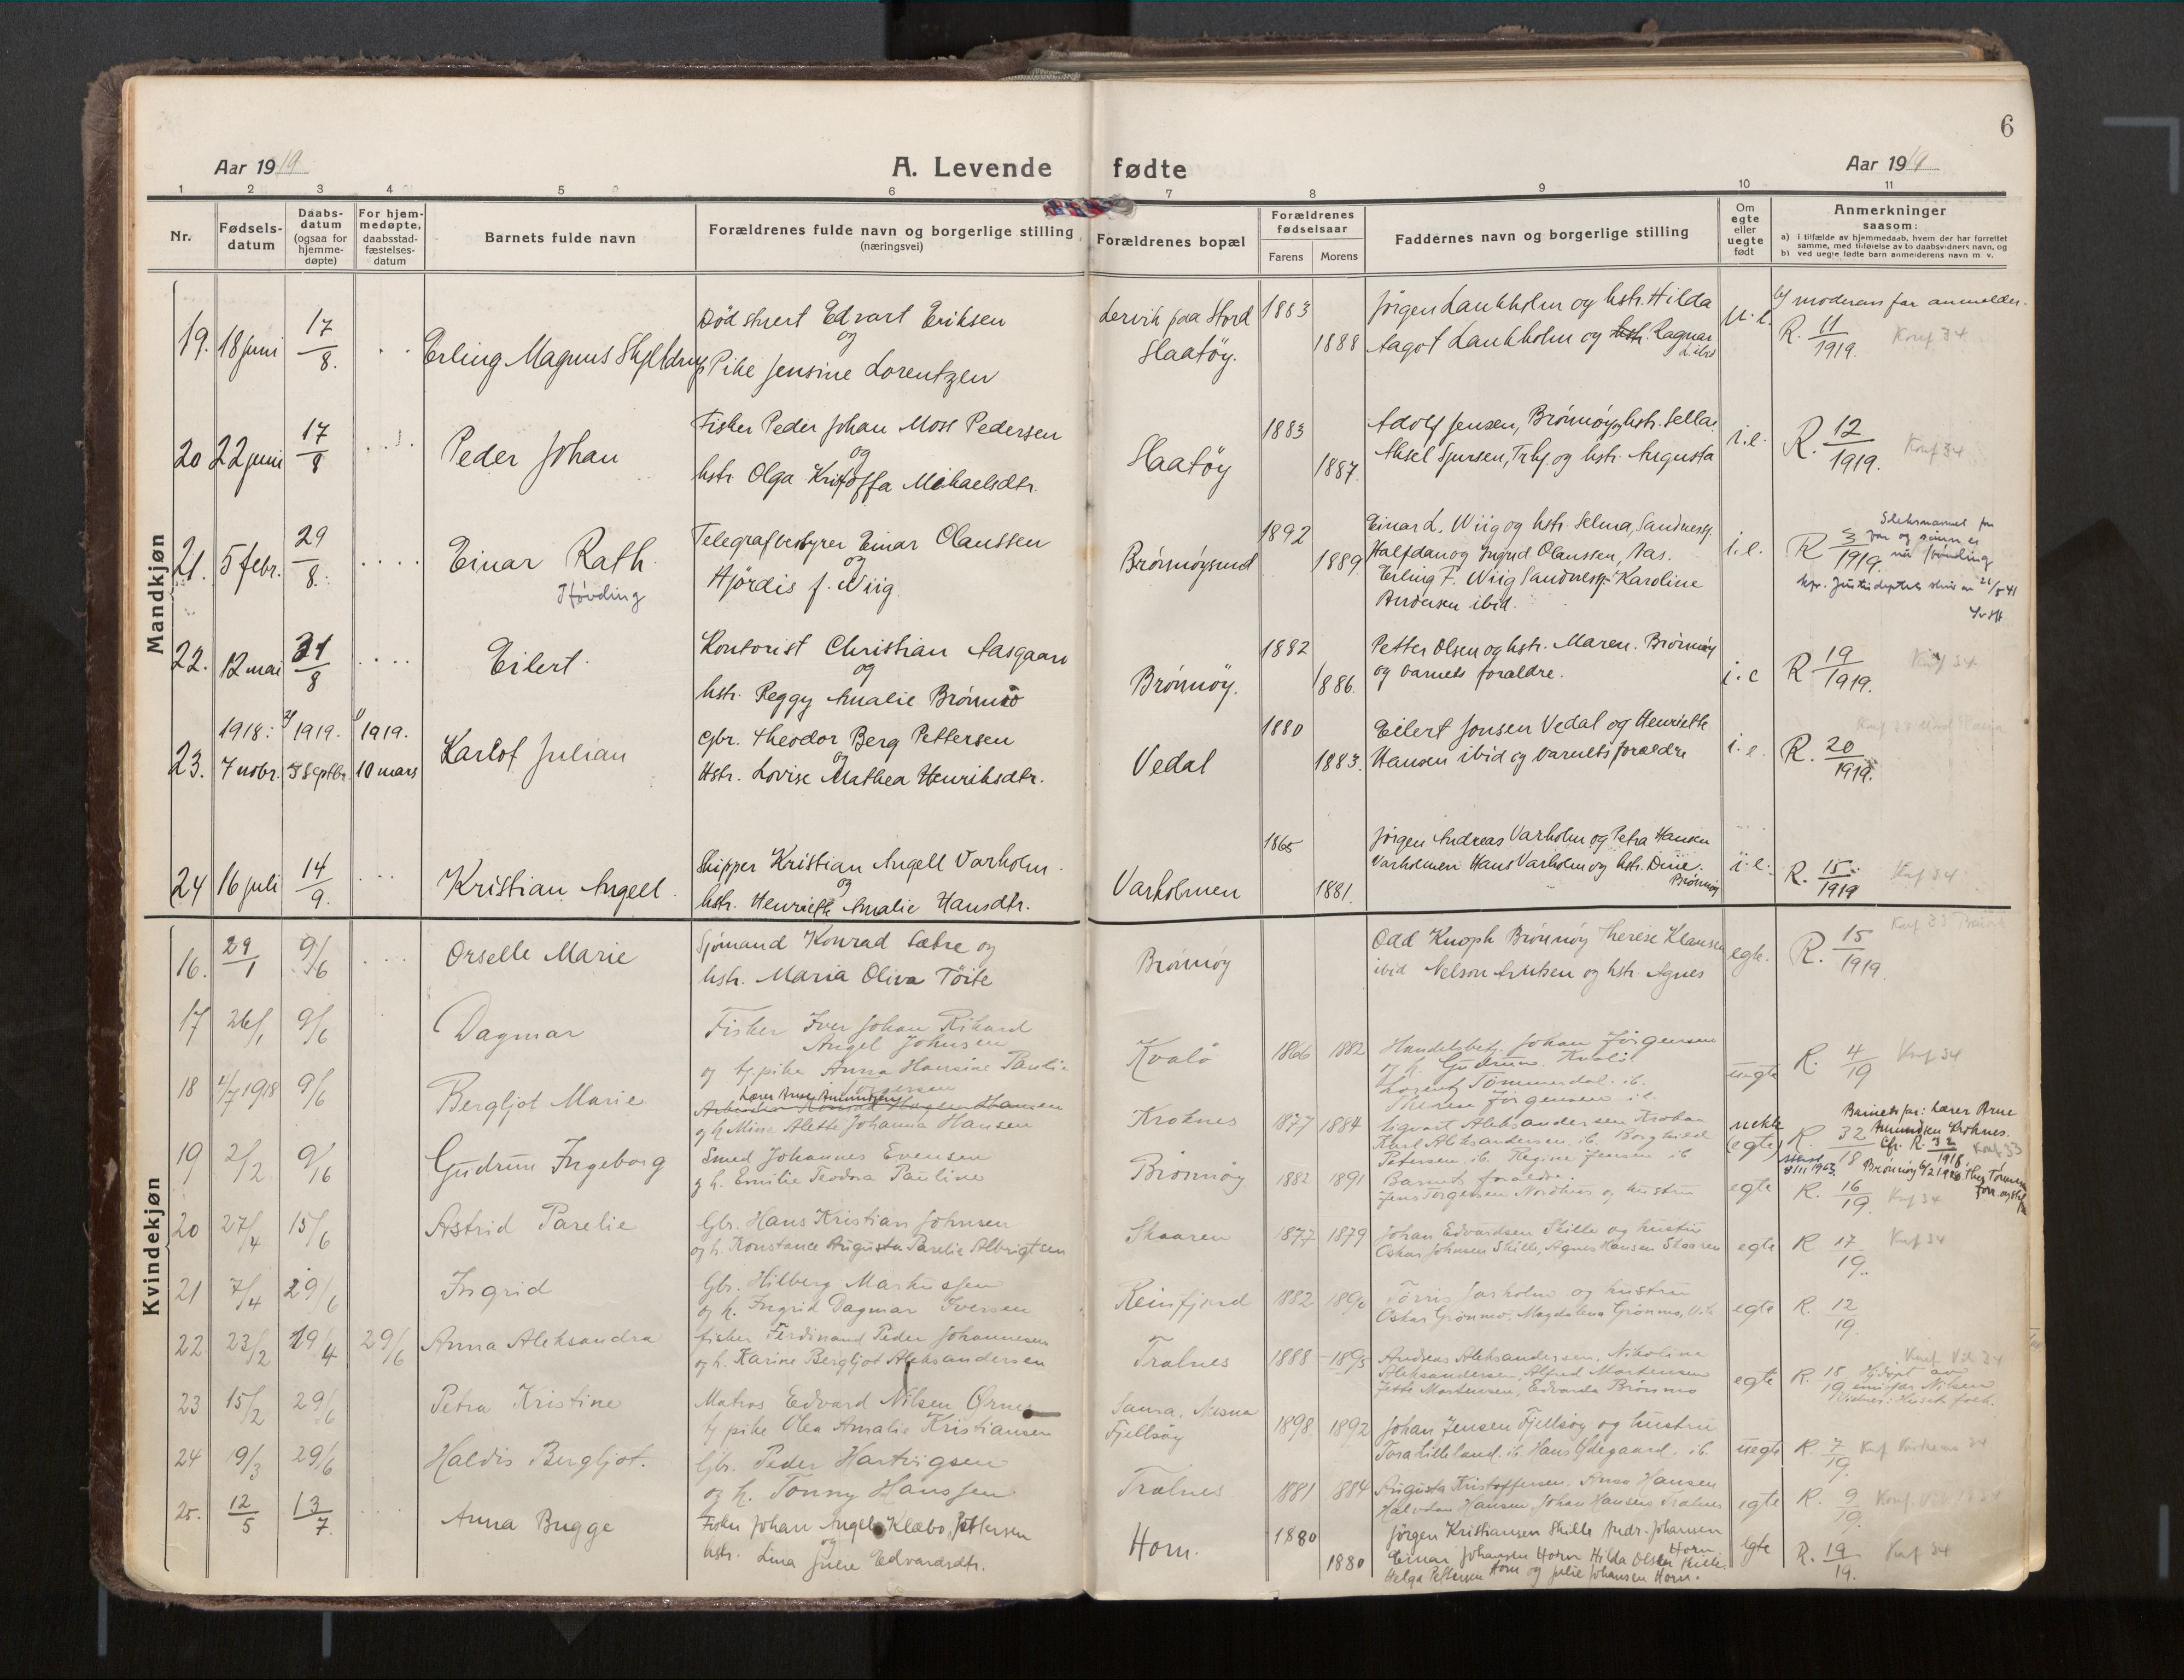 6
Aar 1919
A. Levende fødte
Aar 1919
1 2 3 4 5 6 7 8 9 10 11
Nr.
Fødsels-
datum
Daabs-
datum
(ogsaa for
hjemme-
døpte)
For hjem-
medøpte,
daabsstad-
fæstelses-
datum
Barnets fulde navn
Forældrenes fulde navn og borgerlige stilling
(næringsvei)
Forældrenes bopæl
Forældrenes
fødselsaar
Farens Morens
Faddernes navn og borgerlige stilling
Om
egte
eller
uegte
født
Anmerkninger
saasom:
a) i tilfælde av hjemmedaab, hvem der har forrettet
samme, med tilføielse av to daabsvidners navn, og
b) ved uegte fødte barn anmelderens navn m. v.
Mandkjøn
19. 18 juni 17/8. Erling Magnus
Edvart Eriksen
og
Pike Jensine Lorentzen
Lervik paa Stord
Slaatøy.
1883
1888
Jørgen Laukholm og hstr. Hilda
Aagot Laukholm og hstr. Ragnar
u. e.
b/ moderens far anmelder.
R. 11/1919. Konf 34
20 22 juni 17/8 Peder Johan
Fisker Peder Johan Moss Pedersen
og
hstr. Olga Michaelsdtr.
Slaatøy
1883
1887.
Adolf Jensen, Brönnöy, hstr.
Aksel Sjursen, og hstr. Augusta
i. e.
R. 12/1919. Konf 34
21. 5 febr. 29/8. Einar Rath
Høvding
Telegrafbestyrer Einar Olaussen
og
Hjördis f. Wiig.
Brönnöysund
1892
1889.
Einar L. Wiig og hstr. Selma,
Halfdan og Ingrid Olaussen,
Erling F. Wiig Karoline
Andersen ibid.
i. e.
R 3/1919.
Slektsnavnet for
far og sønn er
nu Høvding
22. 12 mai 31/8 Eilert
Kontorist Christian Aasgaard
og
hstr. Peggy Amalie Brönmo
Brönnöy.
1882
1886.
Petter Olsen og hstr. Maren. Brönnöy
og barnets foraldre.
i. e
R 19/1919. Konf 34
23. 1918: 7 nobr. 1919. Septbr. 1919. 10 mars Karlot Julian
Gbr. Theodor Berg Pettersen
og
Hstr. Lovise Mathea Henriksdtr.
Vedal
1880
1883.
Eilert Jonsen Vedal og Henriette
Hansen ibid og barnets foraeldre
i. e.
R. 20/1919.
24 16 juli 14/9. Kristian Angell.
Skipper Kristian Angell Varholm.
og
hstr. Henriette Amalie Hansdtr.
Varholmen
1865
1881.
Jörgen Andreas Varholm og Petra Hansen
Varholmen Hans Varholm og hstr. Dine.
Brönnöy
i. e.
R. 15/1919 Konf 34
Kvindekjøn
16. 29/1 9/6 Orselle Marie
Sjömand Konrad Sætre og
hstr. Maria Oliva Töite
Brönnöy
Odd Knoph Brönnöy Therese Klausen
ibid Nelson Arntsen og hstr. Agnes
egte.
R. 15/1919.
17 26/1 9/6 Dagmar
Fisker Iver Johan Rikard
Angel Johnsen
og tj. pike Anna Hansine Paulie
Kvalö
1866 1882
Handelsbetj. Johan Jörgensen
og h. Gudrun. Kvalö.
Tömmerdal. ib.
Therese Jörgensen ib.
uegte
R. 4/19 Konf 34
18 4/7 1918 9/6 Bergljot Marie
Lærer Arne Amundsen
og h. Mina Alette Johanna Hansen
Kroknes
1877 1884
Sigvart Aleksandersen
Karl Aleksandersen. ib. Borghild
Petersen. ib. Regine Jensen ib
uekte
(egte)
R. 32/18
Barnets far: Lærer Arne
Amundsen Kroknes.
Cfr. R. 32/1918
19 2/2 9/6 Gudrun Ingeborg
Smed Johannes Evensen
og h. Emilie Teodora Pauline
Brönnöy
1882 1891
Barnets foraldre.
Jens Torgersen Nordhus og hustru
egte
R. 16/19. Konf 34
20 27/4 15/6 Astrid Parelie
Gbr. Hans Kristian Johnsen
og h. Konstance Augusta Parelie Albrigtsen
Skaaren
1877 1879
Johan Edvardsen Skille og hustru
Oskar Johnsen Skille, Agnes Hansen Skaaren
egte
R 17/19. Konf 34
21 7/4 29/6 Ingrid
Gbr. Hilberg Markussen
og h. Ingrid Dagmar Iversen
Reinfjord
1882 1890
Torris og hustru
Oskar Grönmo, Magdalena Grönmo,
egte
R. 12/19.
22 23/2 19/4 29/6 Anna Aleksandra
fisker Ferdinand Peder Johannesen
og h. Karine Bergljot Aleksandersen
Tralnes
1888 – 1895
Andreas Aleksandersen, Nikolina
Aleksandersen, Alfred Mortensen
Jette Mortensen, Edvarda Brönmo
egte
R. 18/19
Hjdöpt av
Nilsen
23 15/2 29/6 Petra Kristine
Matros Edvard Nilsen
tj pike Olea Amalie Kristiansen
Saura, Nesna
Fjellsöy
1898 1892
Johan Jensen Fjellsöy og hustru
Tora Lilleland. ib. Hans Ödegaard. ib.
uegte
R. 7/19.
24 9/3 29/6 Haldis Bergljot.
Gbr. Peder Hartvigsen
og h. Tonny Hanssen
Tralnes
1881 1884
Augusta Kristoffersen. Anna Hansen
Halvdan Hansen Johan Hansen Tralnes
egte
R. 9/19.
25. 12/5 13/7. Anna Bugge
Fisker Johan Angel Klæbo Pettersen
og
hstr. Lina Edvardsdtr.
Horn.
1880
1880
Jörgen Kristiansen Skille Andr. Johansen
Horn
Einar Johansen Horn Hilda Olsen Skille
Helga Pettersen Horn og Julie Johansen Horn.
egte
R. 19/19. Konf 34